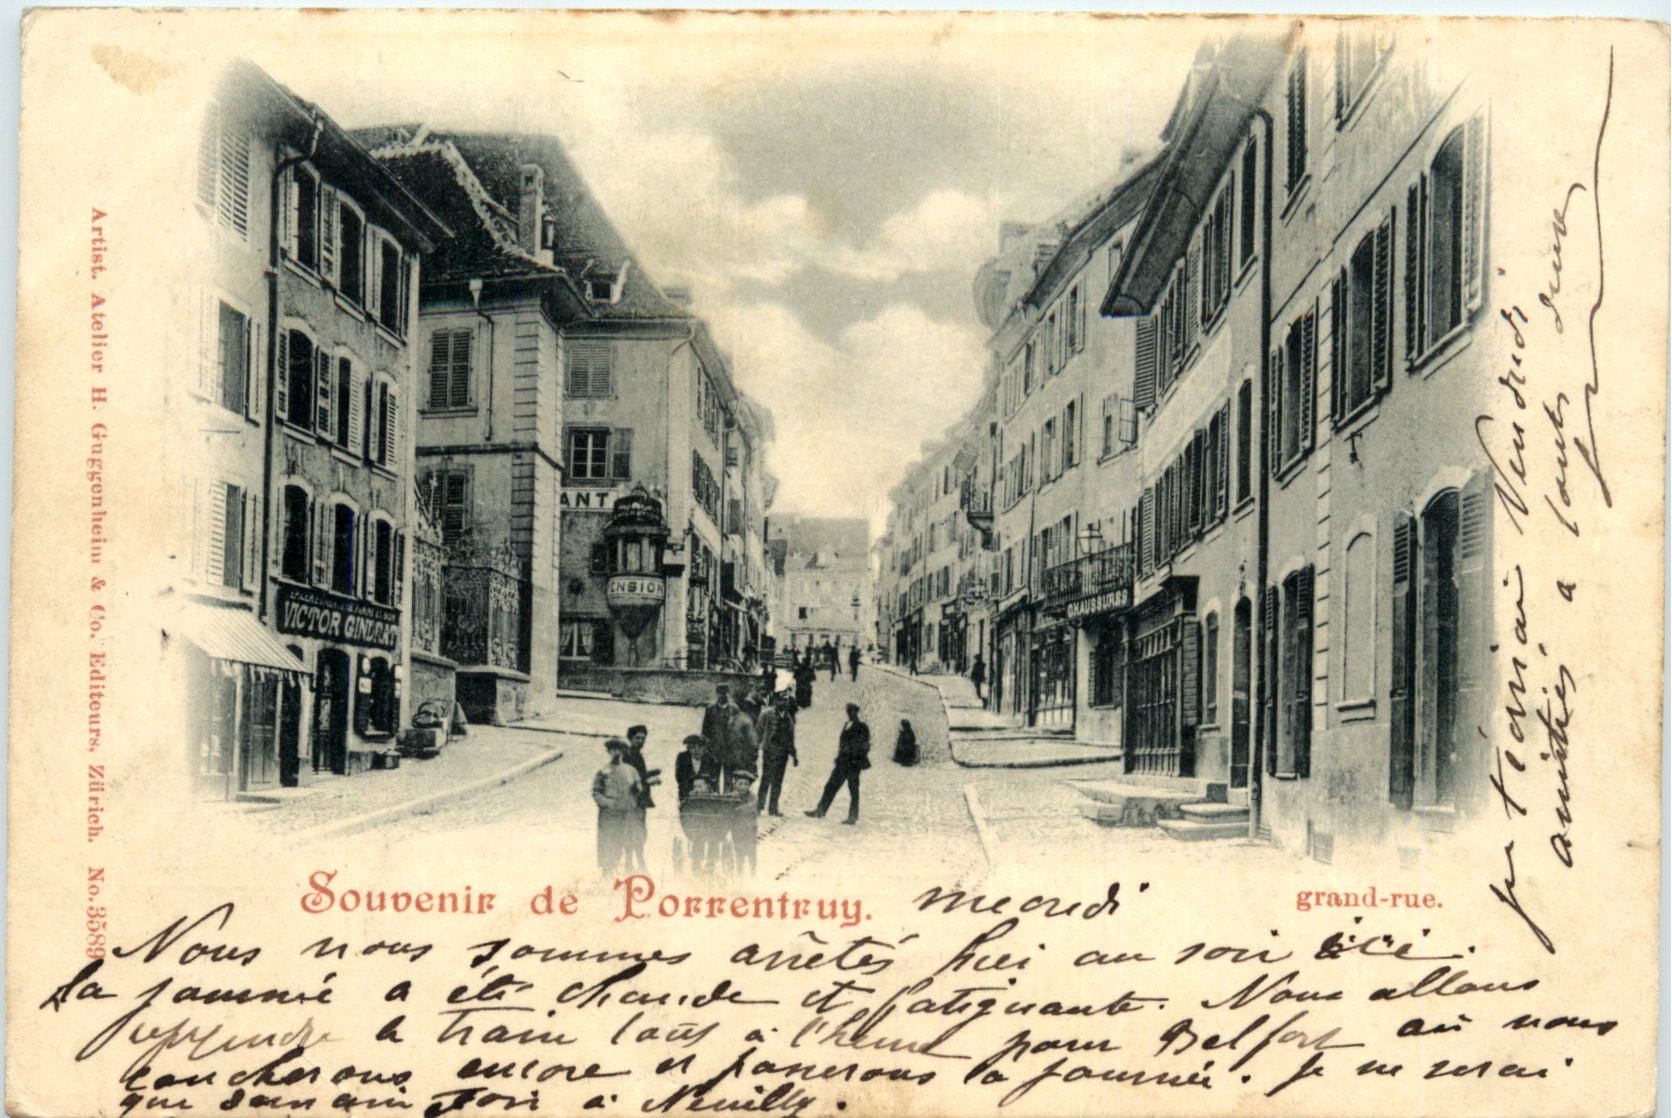 ANT
ENSION
VICTOR GINDRAT
CHAUSSURES
Artist. Atelier H. Guggenheim & Co. Editeurs, Zürich. No. 3589
Souvenir de Porrentruy.
grand-rue.
mecredi
Nous nous sommes arrêtés hier au soir ici.
La journée a été chaude et fatiguante. Nous allons
reprendre le train tout à l'heure pour Belfort où nous
coucherons encore et passerons la journée. Je ne serai
que demain soir à Neuilly.
Je t'écrirai Vendredi
amitiés a toutes deux